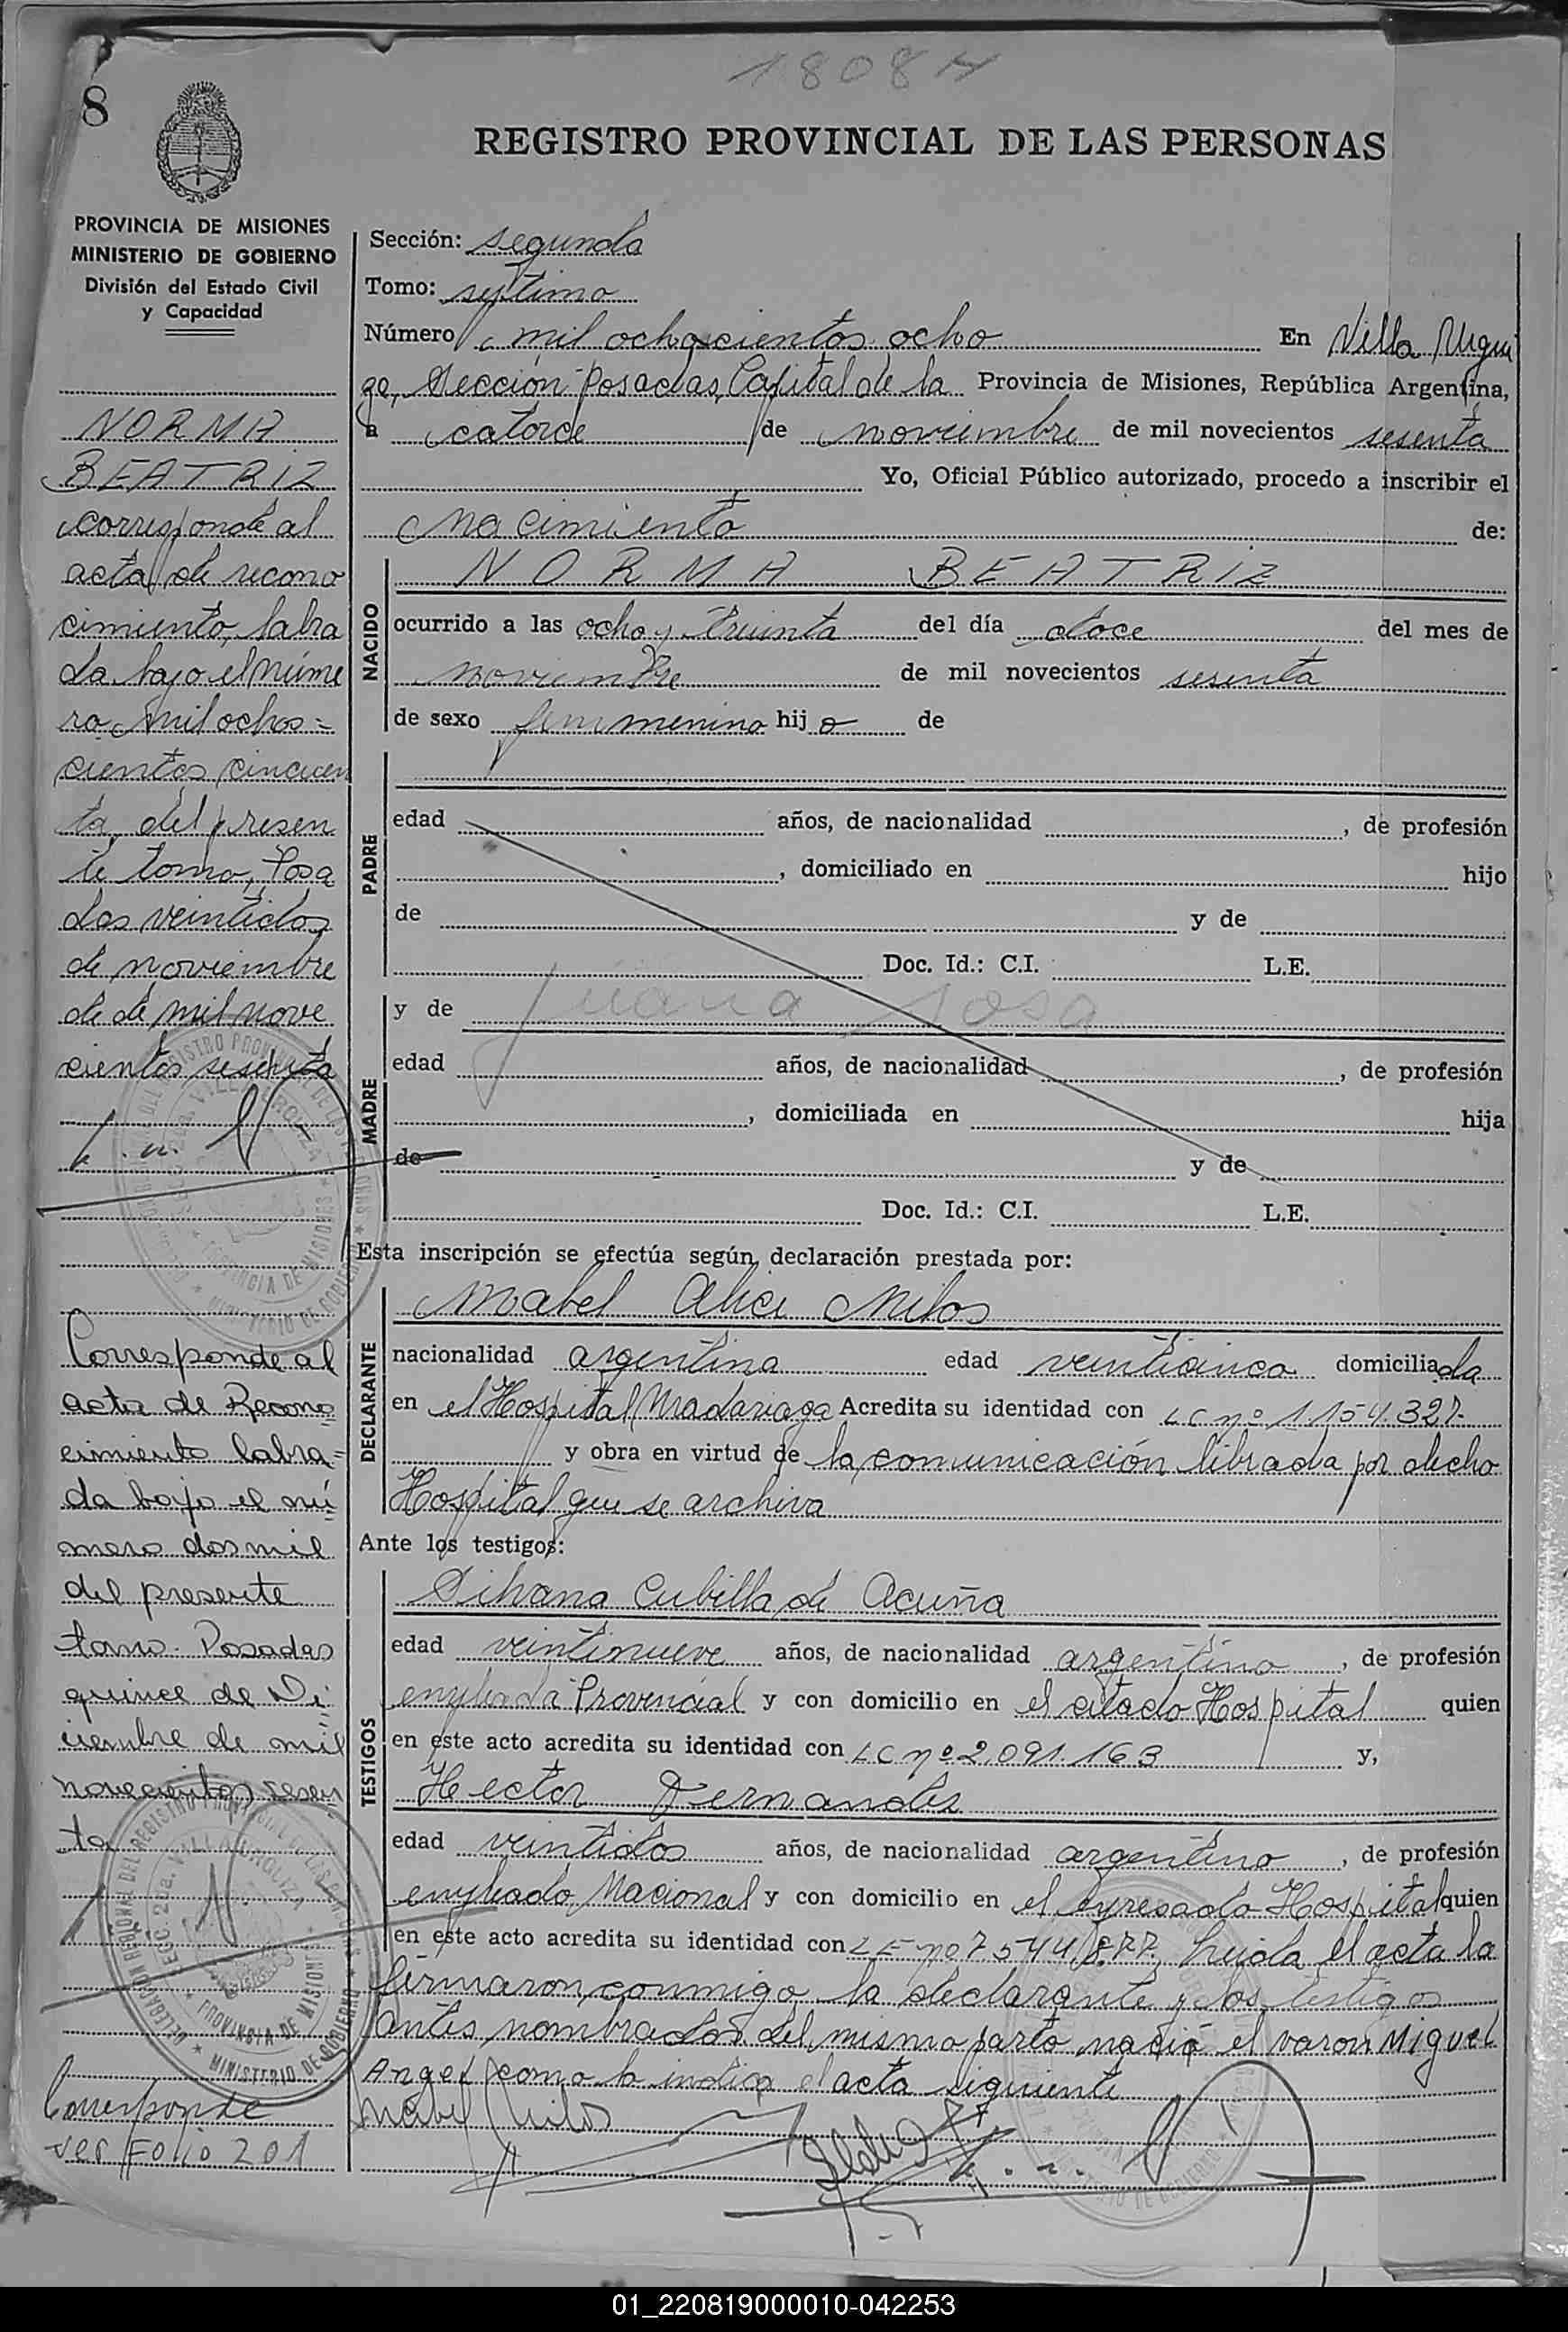 1808 H
8
REGISTRO PROVINCIAL DE LAS PERSONAS
PROVINCIA DE MISIONES
MINISTERIO DE GOBIERNO
División del Estado Civil
y Capacidad
NORMA
BEATRIZ
corresponde al
acta de recono
cimiento, labra
da bajo el núme
ro mil ochos=
cientos cincuen
ta, del presen
te tomo, Posa
das veintidos
de noviembre
de de mil nove
cientos sesenta
Corresponde al
acta de Recono
cimiento labra=
da bajo el nú
mero dos mil
del presente
tomo. Posadas
quince de Di
ciembre de mil
novecientos sesen
ta
Corresponde
ver Folio 201
Sección: segunda
Tomo: septimo
Número mil ochoscientos ocho En Villa Urqui
za, Sección Posadas, Capital de la Provincia de Misiones, República Argentina,
a catorce de noviembre de mil novecientos sesenta
Yo, Oficial Público autorizado, procedo a inscribir el
nacimiento de:
NACIDO
NORMA BEATRIZ
ocurrido a las ocho y treinta del día doce del mes de
noviembre de mil novecientos sesenta
de sexo femmenino hij o de
PADRE
edad años, de nacionalidad , de profesión
, domiciliado en hijo
de y de
Doc. Id.: C.I. L.E.
MADRE
y de Juana Sosa
edad años, de nacionalidad , de profesión
, domiciliada en hija
de y de
Doc. Id.: C.I. L.E.
Esta inscripción se efectúa según declaración prestada por:
DECLARANTE
Mabel Alice Milos
nacionalidad argentina edad veinticinco domiciliada
en el Hospital Madariaga Acredita su identidad con LC nº 1.154.327.
y obra en virtud de la comunicación librada por dicho
Hospital que se archiva
Ante los testigos:
TESTIGOS
Silvana Cubilla de Acuña
edad veintinueve años, de nacionalidad argentino, de profesión
empleada Provincial y con domicilio en el citado Hospital quien
en este acto acredita su identidad con LC nº 2.091.163 y,
Hector Fernandes
edad veintidos años, de nacionalidad argentino, de profesión
empleado Nacional y con domicilio en el expresado Hospital quien
en este acto acredita su identidad con LE nº 7.544.877. Leida el acta la
firmaron conmigo, la declarante y los testigos
antes nombrados. del mismo parto nació el varon Miguel
Angel como lo indica el acta siguiente
Mabel Milos
01_220819000010-042253